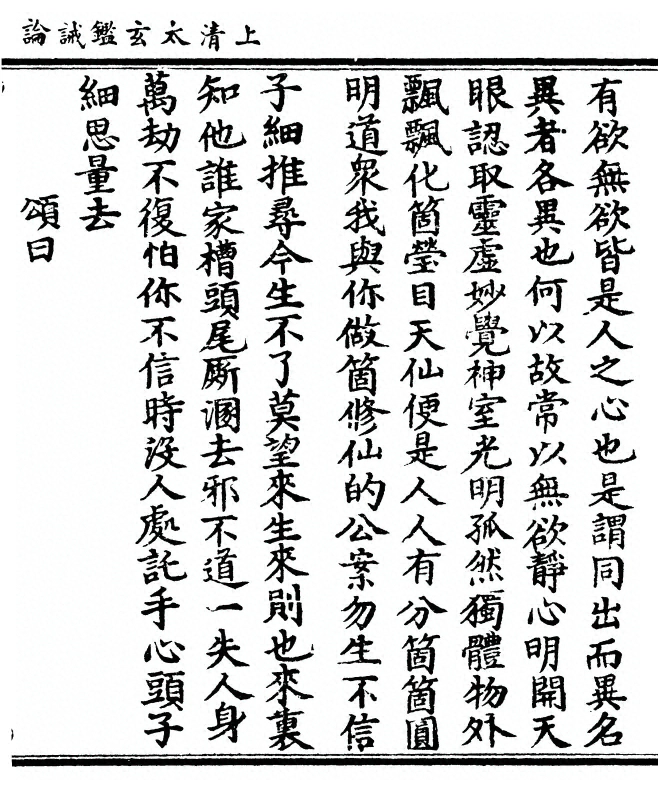 上清太玄鑑誡論
有欲無欲皆是人之心也是謂同出而異名
異者各異也何以故常以無欲靜心明開天
眼認取靈虛妙覺神室光明孤然獨體物外
飄飄化箇瑩目天仙便是人人有分箇箇圓
明道眾我與你做箇修仙的公案勿生不信
子細推尋今生不了莫望來生來則也來裏
知他誰家槽頭尾廝溷去邪不道一失人身
萬劫不復怕你不信時沒人處託手心頭子
細思量去
頌曰